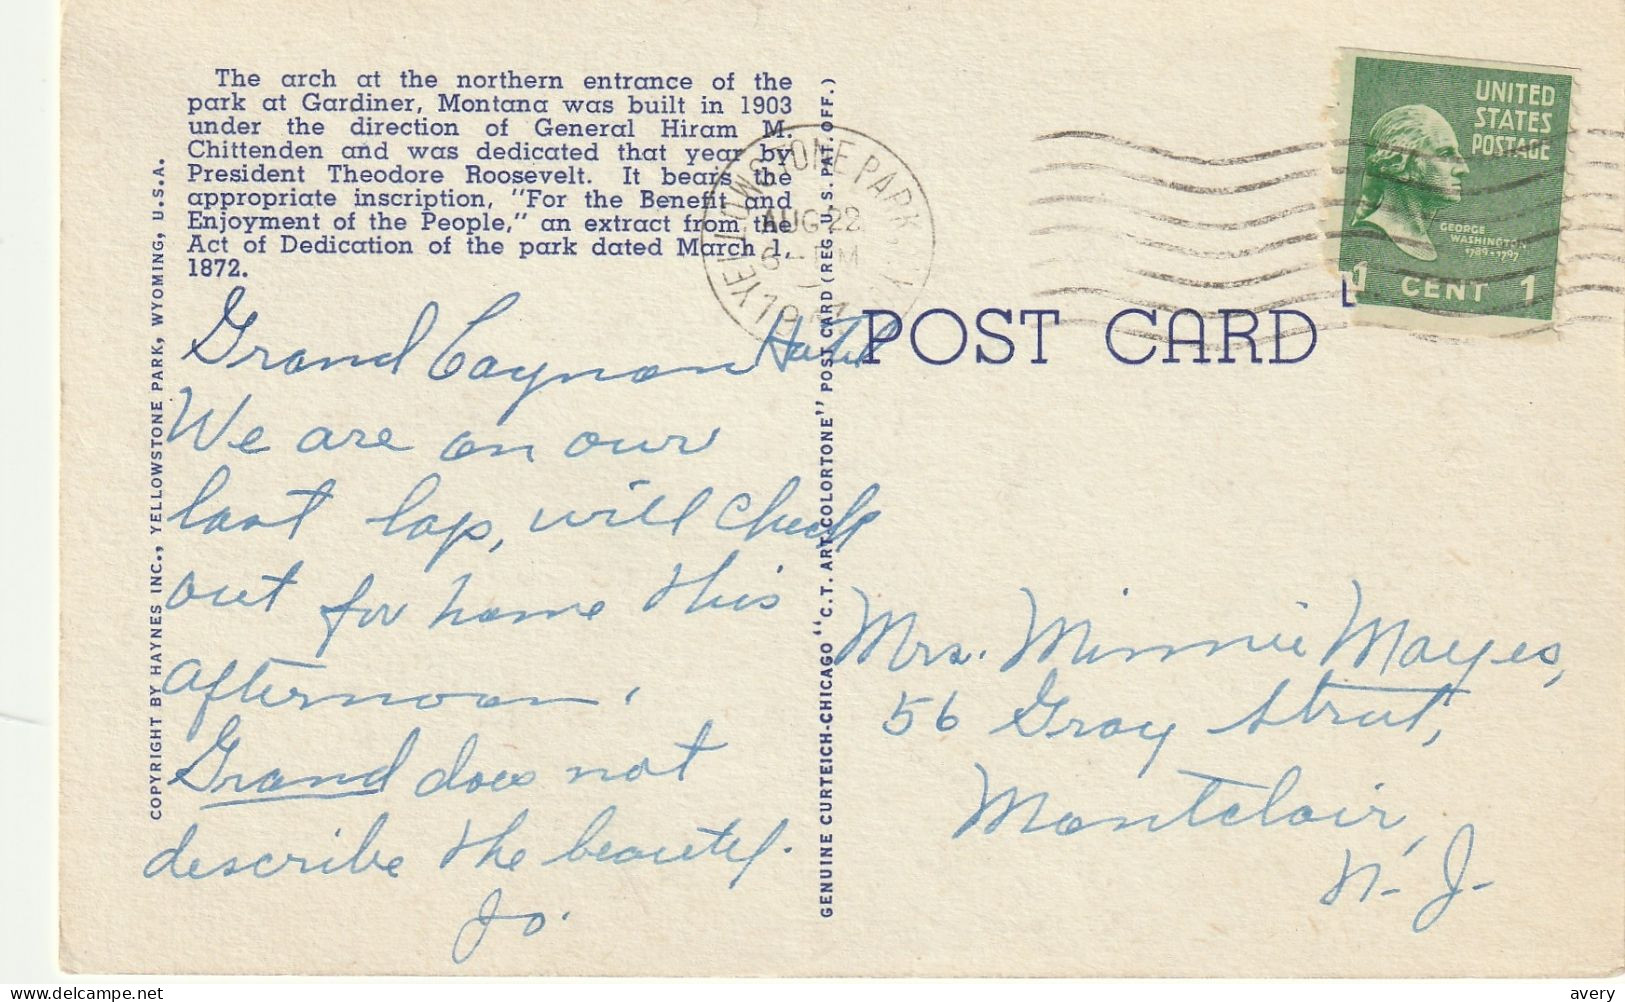 The arch at the northern entrance of the
park at Gardiner, Montana was built in 1903
under the direction of General Hiram M.
Chittenden and was dedicated that year by
President Theodore Roosevelt. It bears the
appropriate inscription, "For the Benefit and
Enjoyment of the People," an extract from the
Act of Dedication of the park dated March 1,
1872.
Grand Caynon Hotel
We are on our
last lap, will check
out for home this
afternoon.
Grand does not
describe the beauty.
Jo.
COPYRIGHT BY HAYNES INC., YELLOWSTONE PARK, WYOMING, U.S.A.
GENUINE CURTEICH-CHICAGO "C.T. ART-COLORTONE" POST CARD (REG. U.S. PAT. OFF.)
YELLOWSTONE PARK
AUG 22
6 PM
POST CARD
UNITED
STATES
POSTAGE
GEORGE
WASHINGTON
1789-1797
1 CENT 1
Mrs. Minnie Mayes,
56 Gray Street,
Montclair,
N. J.
delcampe.net
avery